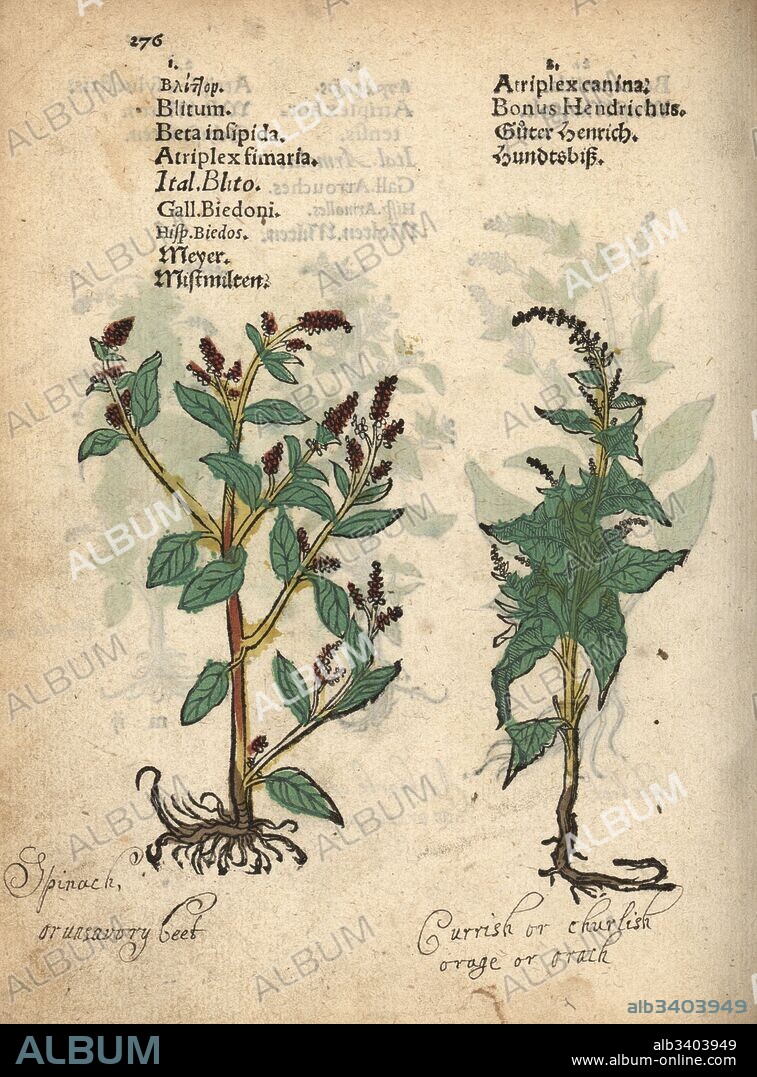 276
1.
Βλίτλον.
Blitum.
Beta insipida.
Atriplex fimaria.
Ital. Blito.
Gall. Biedoni.
Hisp. Biedos.
Meyer.
Mistmilten.
2.
Atriplex canina.
Bonus Hendrichus.
Gůter Henrich.
Hundtsbiß.
Spinach,
or unsavory beet
Currish or churlish
orage or orach
alb3403949
ALBUM
alb3403949
www.album-online.com